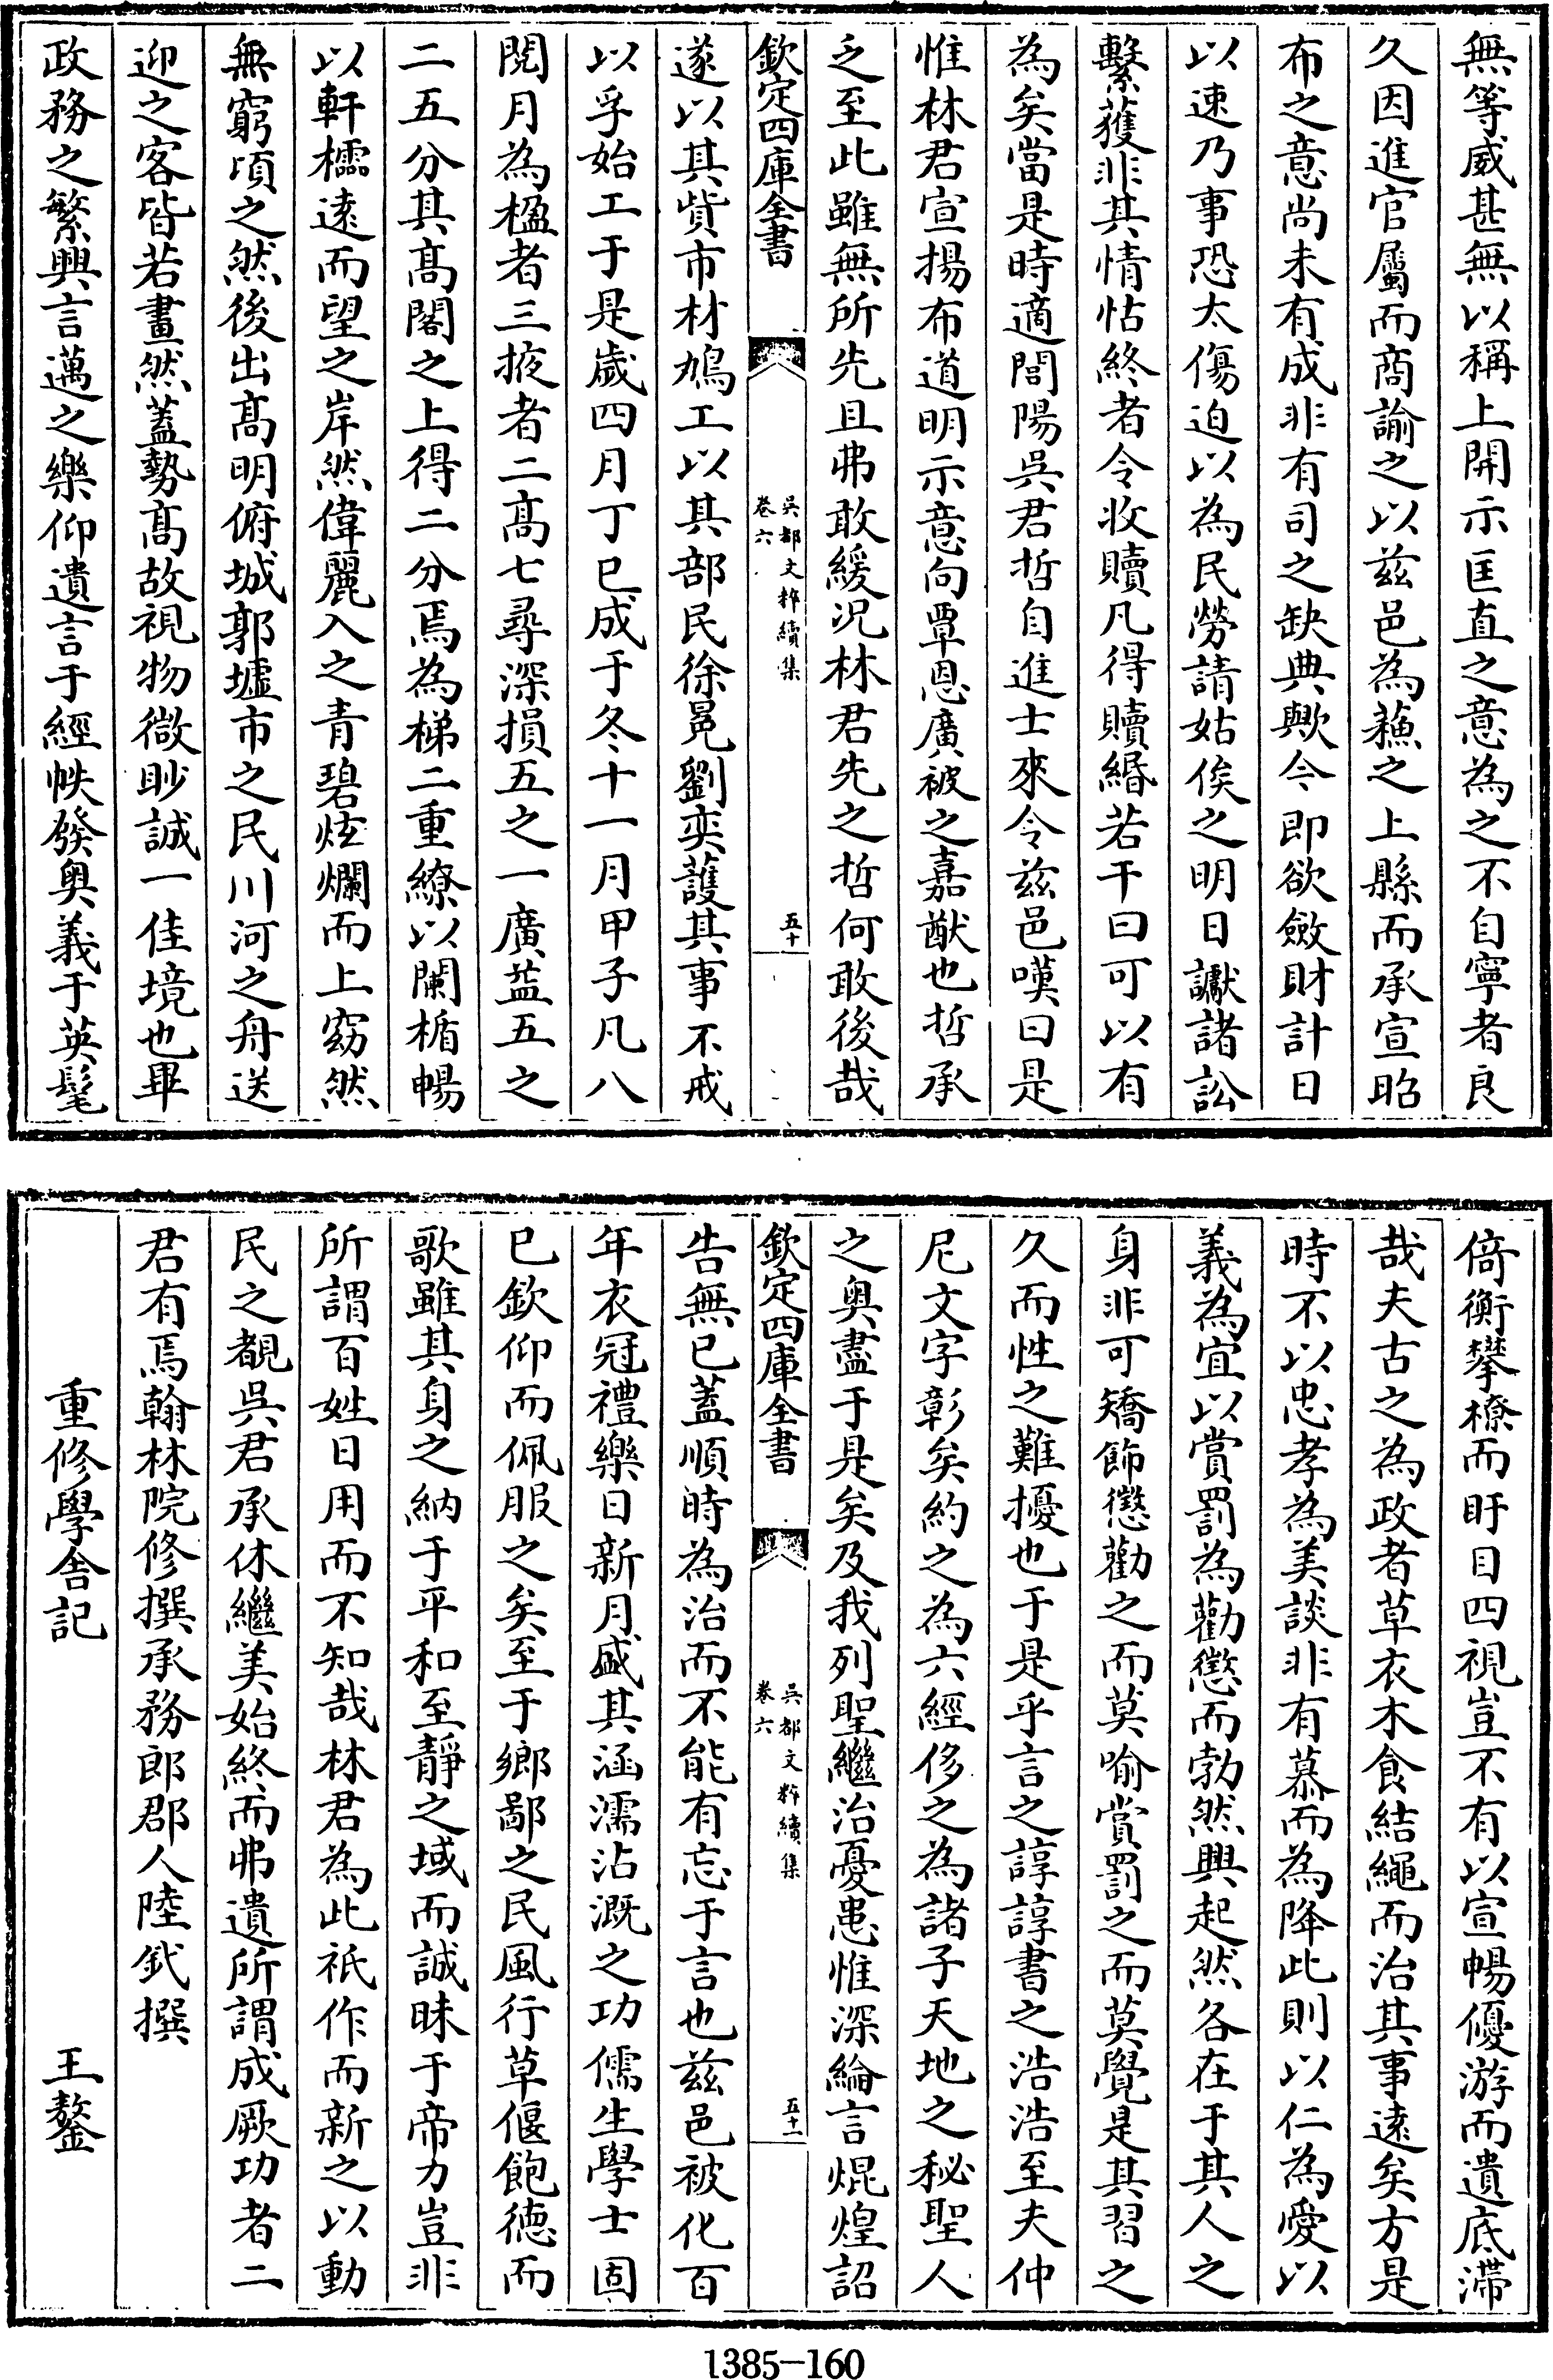 無等威甚無以稱上開示匡直之意為之不自寧者良
久因進官屬而商諭之以兹邑為蘓之上縣而承宣昭
布之意尚未有成非有司之缺典歟今即欲斂財計日
以速乃事恐太傷迫以為民勞請姑俟之明日讞諸訟
繫獲非其情怙終者令收贖凡得贖緡若干曰可以有
為矣當是時適閭陽呉君哲自進士來令兹邑嘆曰是
惟林君宣揚布道明示意向覃恩廣被之嘉猷也哲承
乏至此雖無所先且弗敢緩況林君先之哲何敢後哉
欽定四庫全書
呉都文粹續集
卷六
五十
遂以其貲市材鳩工以其部民徐冕劉奕護其事不戒
以孚始工于是嵗四月丁巳成于冬十一月甲子凡八
閱月為楹者三掖者二髙七尋深損五之一廣益五之
二五分其髙閣之上得二分焉為梯二重繚以闌楯暢
以軒櫺逺而望之岸然偉麗入之青碧炫爛而上窈然
無窮頃之然後出髙明俯城郭墟市之民川河之舟送
迎之客皆若畫然蓋勢髙故視物微眇誠一佳境也畢
政務之繁興言邁之樂仰遺言于經帙發奥義于英髦
倚衡攀橑而盱目四視豈不有以宣暢優游而遺底滯
哉夫古之為政者草衣木食結繩而治其事逺矣方是
時不以忠孝為美談非有慕而為降此則以仁為愛以
義為宜以賞罰為勸懲而勃然興起然各在于其人之
身非可矯飾懲勸之而莫喻賞罰之而莫覺是其習之
久而性之難擾也于是乎言之諄諄書之浩浩至夫仲
尼文字彰矣約之為六經侈之為諸子天地之秘聖人
之奥盡于是矣及我列聖繼治憂慮惟深綸言焜煌詔
欽定四庫全書
呉都文粹續集
卷六
五十一
告無已蓋順時為治而不能有忘于言也兹邑被化百
年衣冠禮樂日新月盛其涵濡沾溉之功儒生學士固
已欽仰而佩服之矣至于鄉鄙之民風行草偃飽徳而
歌雖其身之納于平和至靜之域而誠昧于帝力豈非
所謂百姓日用而不知哉林君為此祇作而新之以動
民之覩呉君承休繼美始終而弗遺所謂成厥功者二
君有焉翰林院修撰承務郎郡人陸釴撰
重修學舍記　王鏊
1385-160